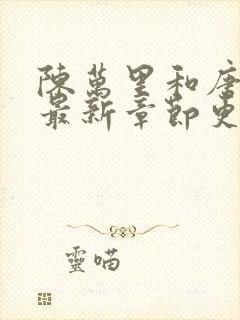 陳萬里和唐
最新章節更
靈喵